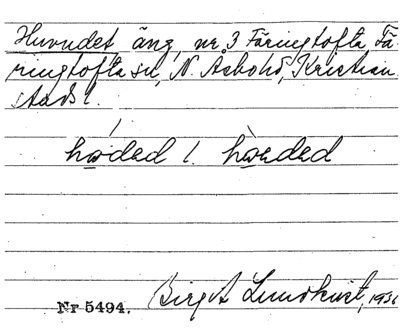 Huvudet, äng, nr 3 Färingtofta Fä-
ringtofta sn, N. Åsbo hd, Kristian-
stads l.
hǫded l. hǫeded
Nr 5494. Birgit Lundkvist, 193